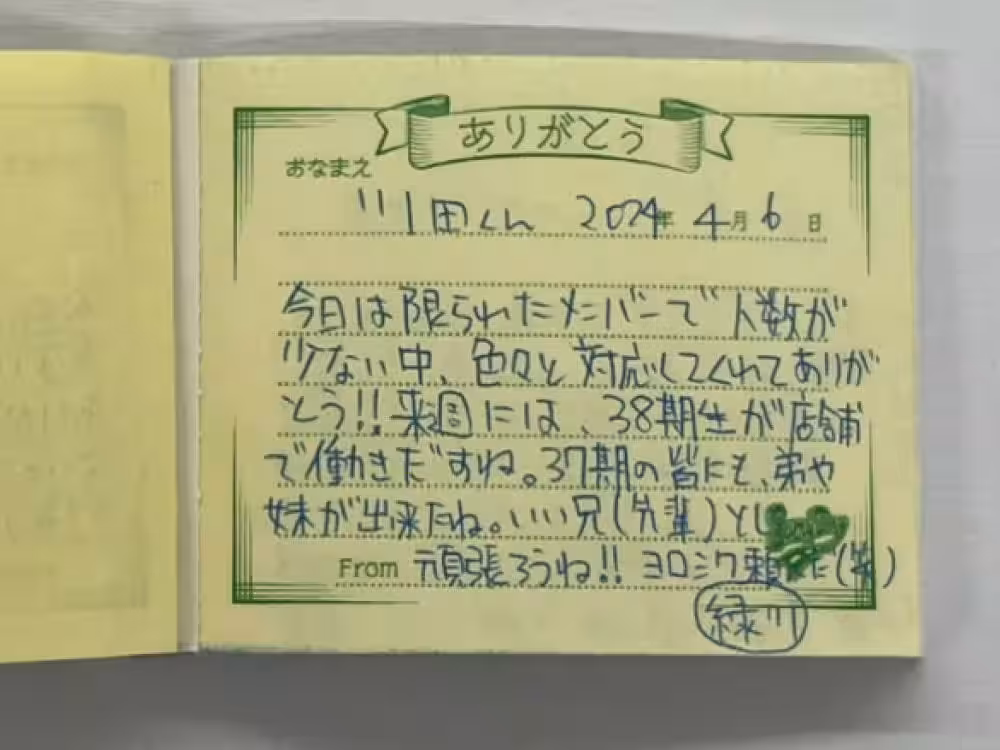 ありがとう
おなまえ
川田くん 2024年 4月 6日
今日は限られたメンバーで人数が
少ない中、色々と対応してくれてありが
とう!!来週には、38期生が店舗
で働きだすね。37期の皆にも、弟や
妹が出来たね。いい兄(先輩)とし
From 頑張ろうね!! ヨロシク頼 (笑)
緑川